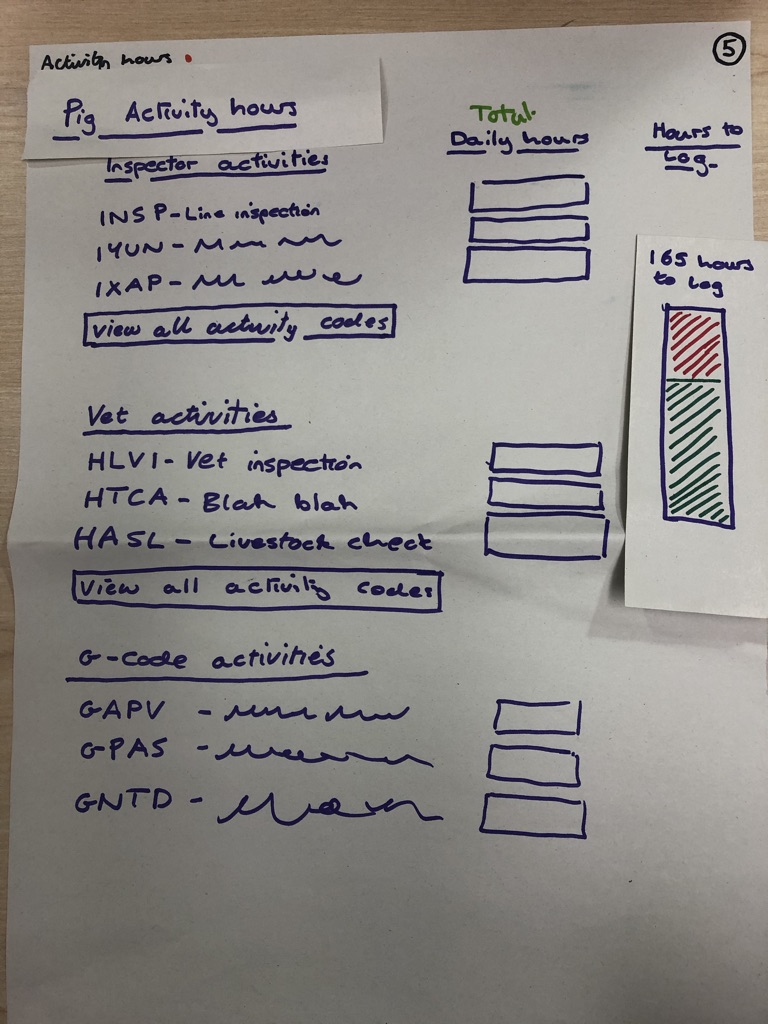 5
Activity hours
Pig Activity hours
Total
Daily hours
Hours to
Log
Inspector activities
INSP - Line inspection
IYUN -
IXAP -
View all activity codes
165 hours
to Log
Vet activities
HLVI - Vet inspection
HTCA - Blah blah
HASL - Livestock check
View all activity codes
G-Code activities
GAPV -
GPAS -
GNTD -